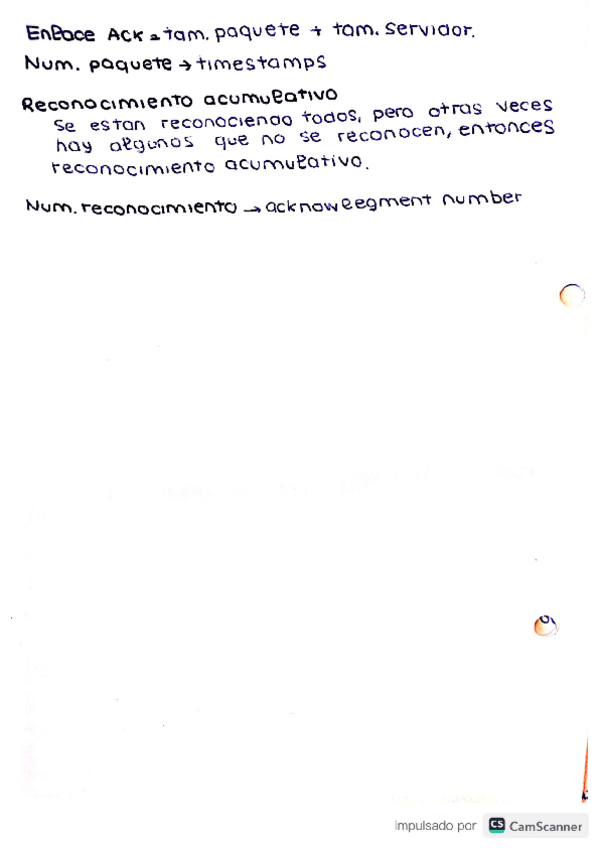 Enlace Ack = tam. paquete + tam. servidor.
Num. paquete → timestamps
Reconocimiento acumulativo
Se estan reconociendo todos, pero otras veces
hay algunos que no se reconocen, entonces
reconocimiento acumulativo.
Num. reconocimiento → acknowleegment number
impulsado por CS CamScanner